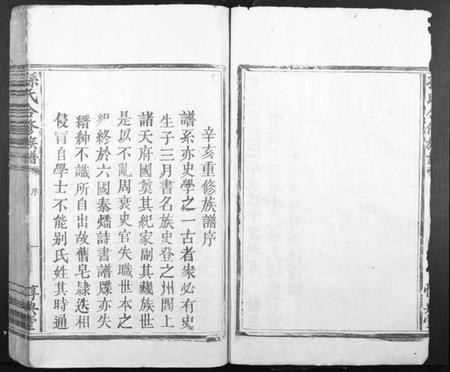 辛亥重修族譜序
譜系亦史學之一古者家必有史
生子三月書名族史登之州閭上
諸天府國奠其紀家副其藏族世
是以不亂周衰史官失職世本之
紀終於六國秦燔詩書譜牒亦失
縉紳不識所自出故舊皂隸迭相
侵冒自學士不能别氏姓其時通
孫氏合修族譜
序
一
惇典堂